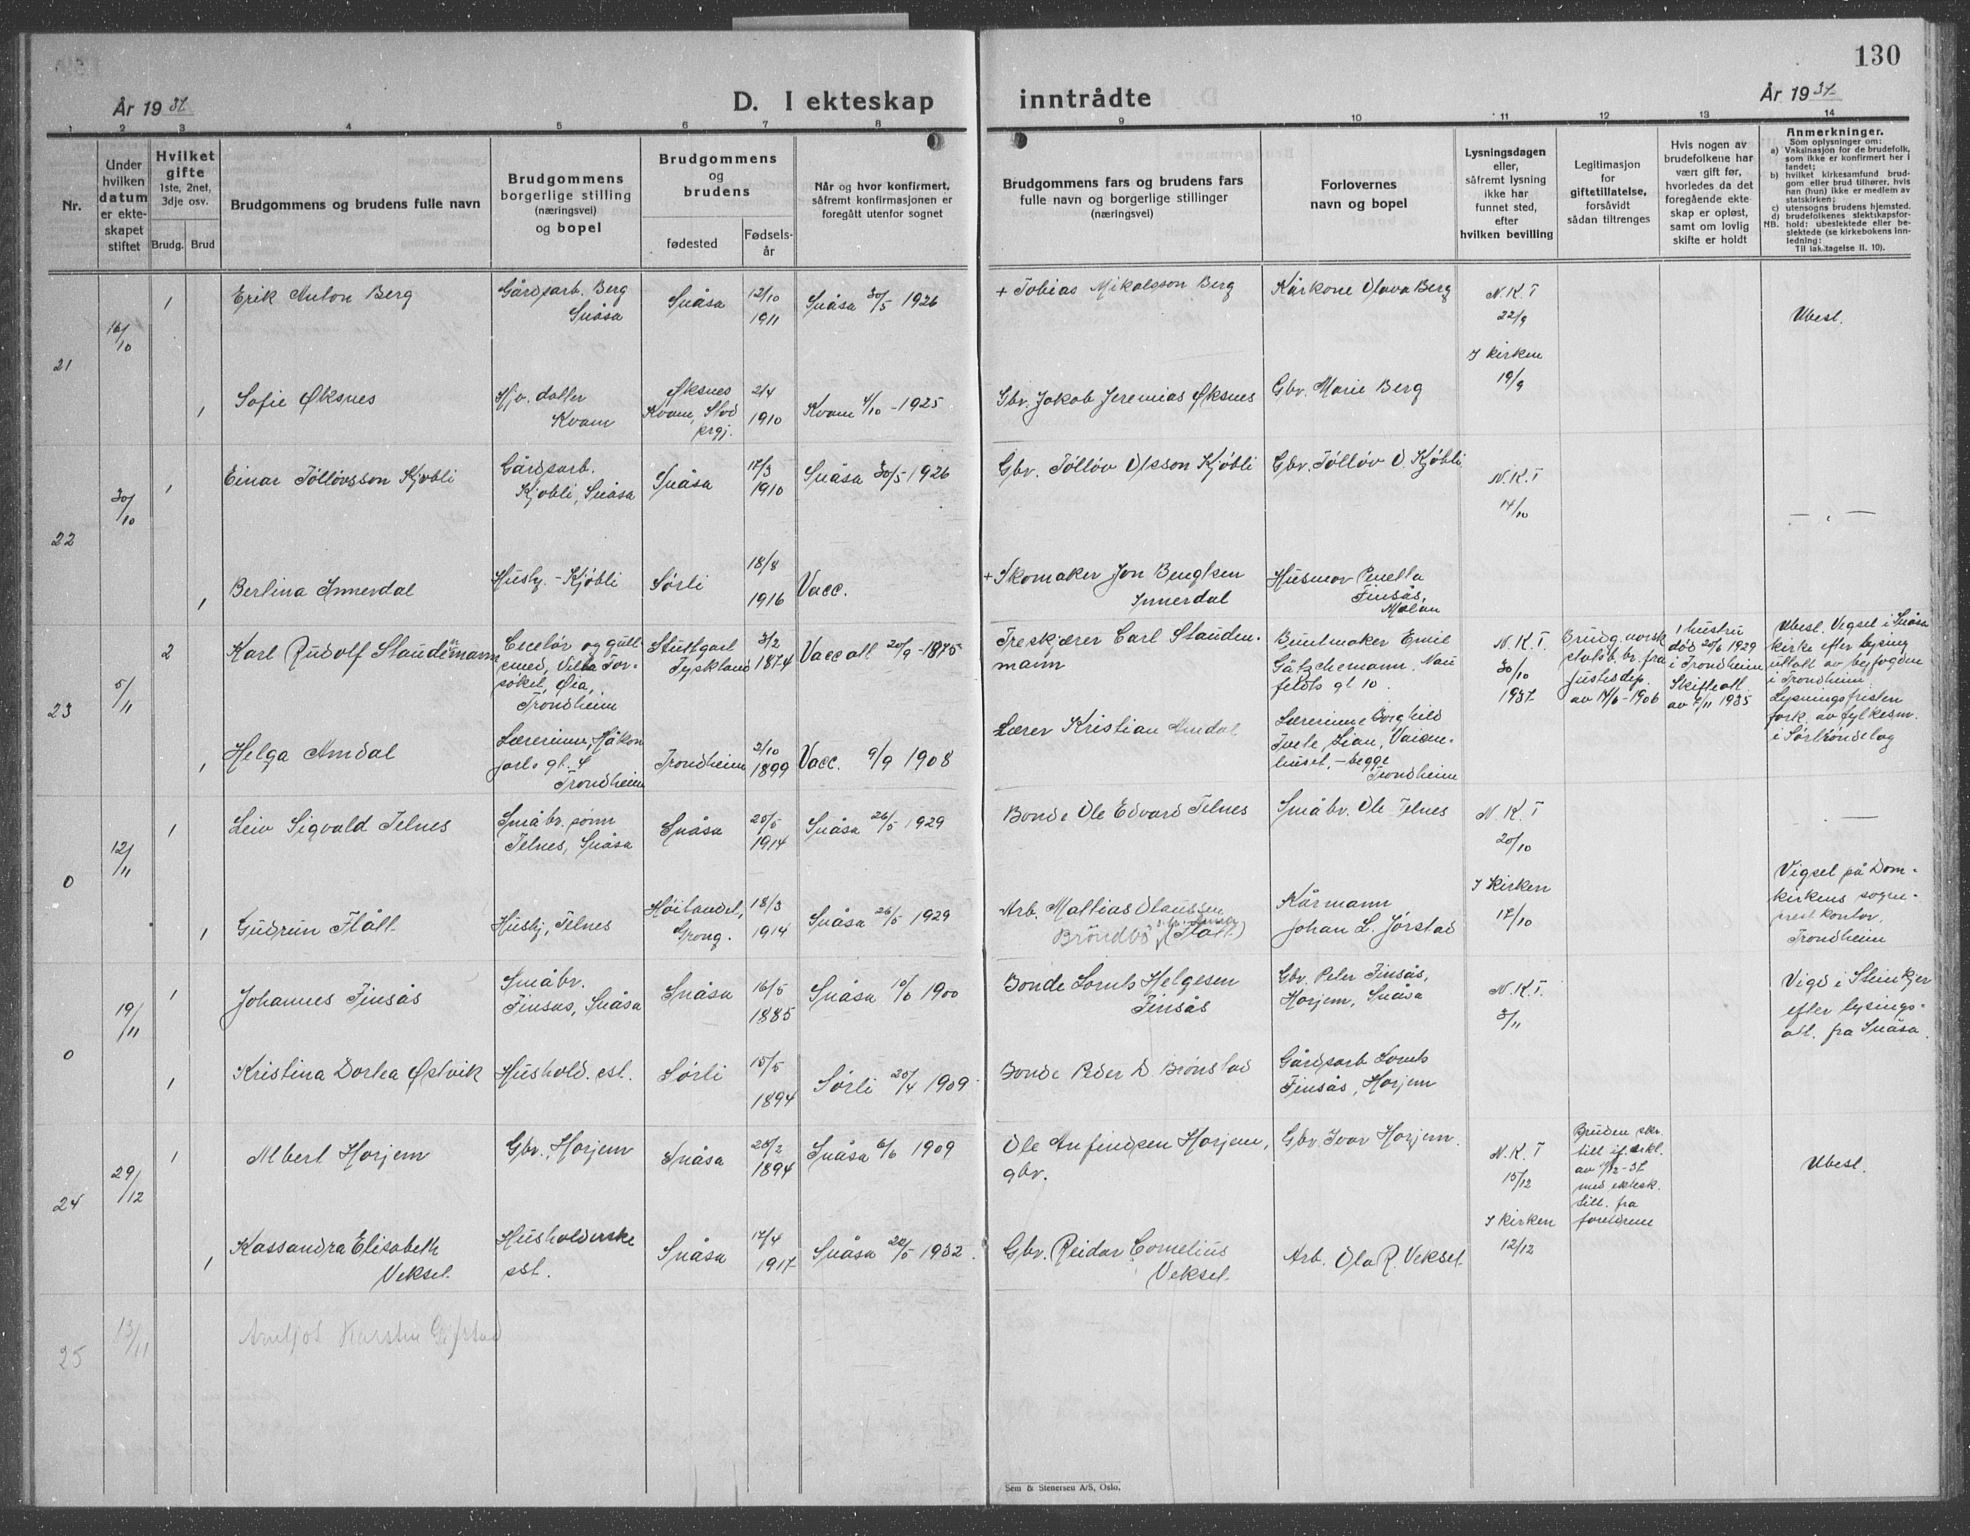 130
År 1937
D. I ekteskap inntrådte
År 1937
1 2 3 4 5 6 7 8 9 10 11 12 13 14
Nr.
Under hvilken datum er ekteskapet stiftet
Hvilket gifte
1ste, 2net, 3dje osv.
Brudg. Brud
Brudgommens og brudens fulle navn
Brudgommens borgerlige stilling (næringsvei) og bopel
Brudgommens og brudens
fødested
Fødselsår
Når og hvor konfirmert, såfremt konfirmasjonen er foregått utenfor sognet
Brudgommens fars og brudens fars fulle navn og borgerlige stillinger (næringsvei)
Forlovernes navn og bopel
Lysningsdagen eller, såfremt lysning ikke har funnet sted, efter hvilken bevilling
Legitimasjon for giftetillatelse, forsåvidt sådan tiltrenges
Hvis nogen av brudefolkene har vært gift før, hvorledes da det foregående ekteskap er opløst, samt om lovlig skifte er holdt
Anmerkninger.
Som oplysninger om:
a) Vaksinasjon for de brudefolk, som ikke er konfirmert her i landet;
b) hvilket kirkesamfund brudgom eller brud tilhører, hvis nan (hun) ikke er medlem av statskirken;
c) utensogns brudens hjemsted.
d) brudefolkenes slektskapsforhold: ubeslektede eller beslektede (se kirkebokens innledning;
NB.
Til iakttagelse II. 10).
21
16/10
1
Erik Anton Berg
Gårdsarb. Berg
Snåsa
Snåsa
12/10
1911
Snåsa 30/5 1926
+ Tobias Mikalsson Berg
Kårkone Olava Berg
N.K.T
22/9
I kirken
19/9
Ubesl.
1
Sofie Øksnes
Hjv. datter
Kvam
Øksnes
Kvam, Stod
prgj.
2/4
1910
Kvam 4/10 - 1925
Gbr. Jakob Jeremias Øksnes
Gbr. Marie Berg
22
30/10
1
Einar Tølløvsson Kjøbli
Gårdsarb.
Kjøbli, Snåsa
Snåsa
17/3
1910
Snåsa 30/5 - 1926
Gbr. Tølløv Olsson Kjøbli
Gbr. Tølløv O. Kjøbli
N.K.T
14/10
— " —
1
Berlina Innerdal
Hushj. - Kjøbli
Sørli
18/8
1916
Vacc.
+ Skomaker Jon Bengtsen
Innerdal
Husmor Penella
Finsås,
Mælan
23
5/11
2
Karl Rudolf Staudenmann
Ciselør og gullsmed, Villa Torsøkel, Øia,
Trondheim
Stuttgart
Tyskland
3/2
1874
Vacc att 20/9 - 1875
Treskjærer Carl Staudenmann
Buntmaker Emil
Götzchemann. Naufeldts gt 10.
N.K.T.
30/10
1937
Brudg. norsk
statsb. br. fra
Justisdep.
av 14/6 - 1906
1 hustru
død 20/6 1929
i Trondheim
Skifteatt.
av 2/11 1935
Ubesl. Vigsel i Snåsa
kirke efter lysing
uttatt av byfogden
i Trondheim.
Lysningsfristen
fork. av fylkesm.
i Sørtrøndelag
1
Helga Amdal
Lærerinne, Håkon
jarls gt. 4
Trondheim
Trondheim
2/10
1899
Vacc. 9/9 1908
Lærer Kristian Amdal
Lærerinne Borghild
Tvete Lian, Vaisenhuset, - begge
Trondheim
0
12/11
1
Leiv Sigvald Telnes
Småbr. sønn
Telnes, Snåsa
Snåsa
25/5
1914
Snåsa 26/5 1929
Bonde Ole Edvard Telnes
Småbr. Ole Telnes
N.K.T
20/10
I kirken
17/10
Vigsel på Domkirkens sogneprestkontor,
Trondheim
1
Gudrun Flått
Hushj. Telnes
Høilandet,
Grong.
18/3
1914
Snåsa 26/5 1929
Arb. Mattias Olaussen
Brøndbo (Flått)
Kårmann
Johan L. Jørstad
0
19/11
1
Johannes Finsås
Småbr.
Finsås, Snåsa
Snåsa
16/5
1885
Snåsa 10/6 1900
Bonde Lornts Helgesen
Finsås
Gbr. Peter Finsås,
Horjem, Snåsa
N.K.T.
3/11
Vigd i Steinkjer
efter lysingsatt. fra Snåsa.
1
Kristina Dortea Østvik
Hushold. est.
Sørli
15/5
1894
Sørli 20/4 1909
Bonde Peder D. Brønstad
Gårdsarb Lornts
Finsås, Horjem
24
29/12
1
Albert Horjem
Gbr., Horjem
Snåsa
28/2
1894
Snåsa 6/6 1909
Ole Anfindsen Horjem,
gbr.
Gbr. Ivar Horjem.
N.K.T
15/12
I kirken
12/12
Bruden skr.
till if. erkl.
av 1/12 - 37
med ektesk.
till. fra
foreldrene
Ubesl.
1
Kassandra Elisabeth
Veksel.
Husholderske
est.
Snåsa
17/4
1917
Snåsa 22/5 1932.
Gbr. Reidar Cornelius
Veksel.
Arb. Ola R. Veksel.
25
13/11
Arnljot Karstin Gifstad
Sem & Stenersen A/S, Oslo.